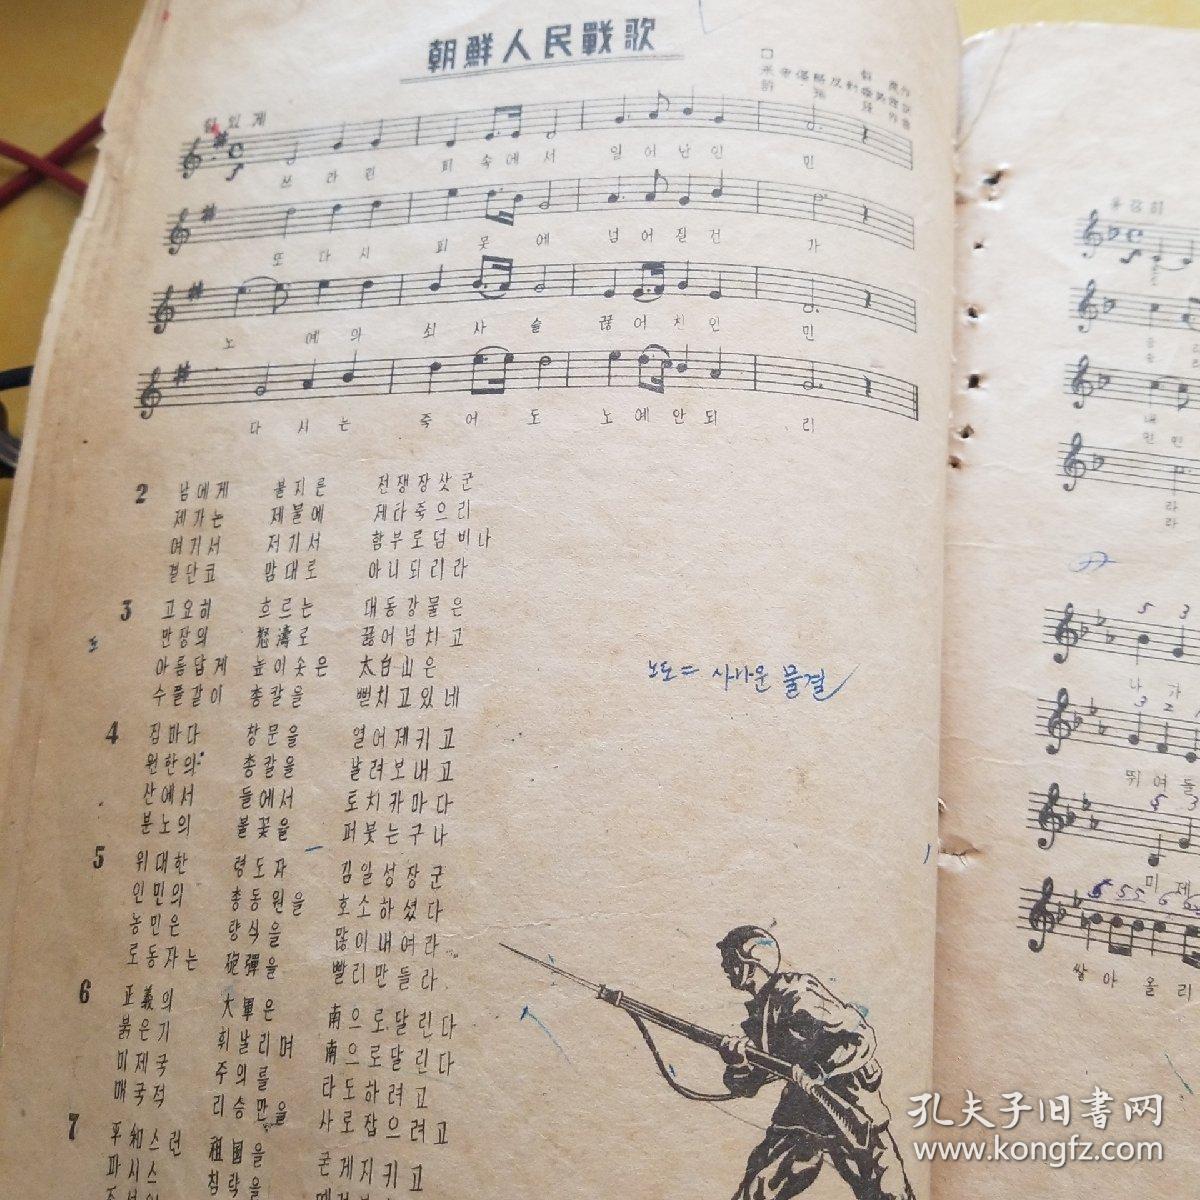 朝鮮人民戰歌
힘있게
쓰라린 피속에서 일어난인 민
또다시 피못에 넘어질건 가
노 예의 쇠사슬 끊어치인 민
다시는 죽어도 노예안되 리
2 남에게 불지른 전쟁장삿군
제가는 제불에 제타죽으리
여기서 저기서 함부로덤비나
결단코 맘대로 아니되리라
3 고요히 흐르는 대동강물은
만장의 怒濤로 끓어넘치고
아름답게 높이솟은 太白山은
수풀같이 총칼을 뻗치고있네
노도 = 사나운 물결
4 집마다 창문을 열어제키고
원한의 총칼을 날려보내고
산에서 들에서 토치카마다
분노의 불꽃을 퍼붓는구나
5 위대한 령도자 김일성장군
인민의 총동원을 호소하셨다
농민은 량식을 많이내여라
로동자는 砲彈을 빨리만들라
6 正義의 大軍은 南으로달린다
붉은기 휘날리며 南으로달린다
미제국 주의를 타도하려고
매국적 리승만을 사로잡으려고
7 平和스런 祖國을 굳게지키고
파시스 침략을
용감히
나 가
뛰여들
미제
쌓아올리
5 3
3 2
5 3
5 55 6
孔夫子旧书网
www.kongfz.com